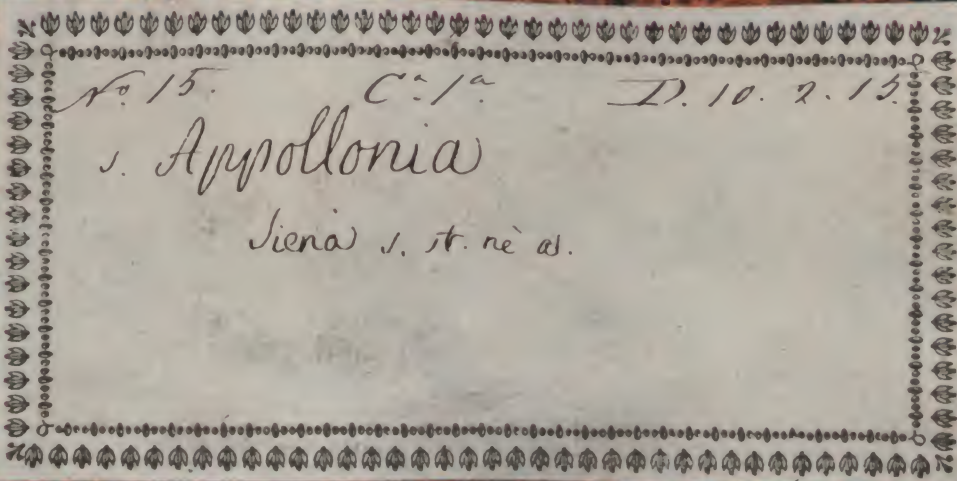 N.º 15. C.ª 1.ª D. 10. 2. 15.
s. Appollonia
Siena s. st. nè a.